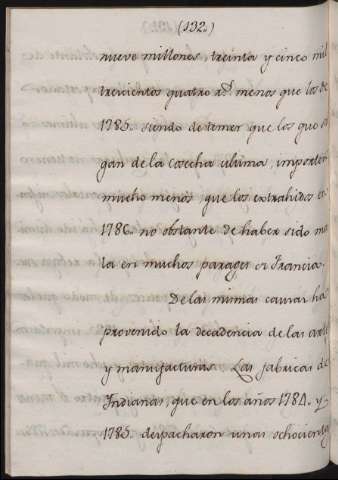 (132.)
nueve millones, treinta y cinco mil
trecientos quatro r.d menos que los de
1785. siendo de temer que los que sal
gan de la cosecha ultima, importen
mucho menos que los extrahidos en
1786. no obstante de haber sido ma
la en muchos parages en Francia.
De las mismas causas ha
provenido la decadencia de las artes
y manufacturas. Las fabricas de
Indianas, que en los años 1784. y
1785. despacharon unas ochocientas